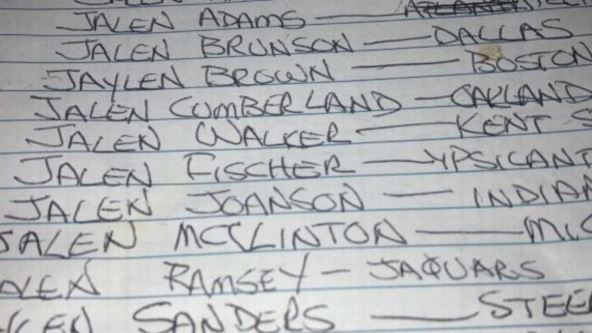 JALEN ADAMS —
JALEN BRUNSON — DALLAS
JAYLEN BROWN — BOSTON
JALEN CUMBERLAND — OAKLAND
JALEN WALKER — KENT S
JALEN FISCHER — YPSILANT
JALEN JOANSON — INDIAN
JALEN MCCLINTON —
ALEN RAMSEY - JAQUARS
LEN SANDERS — STEE